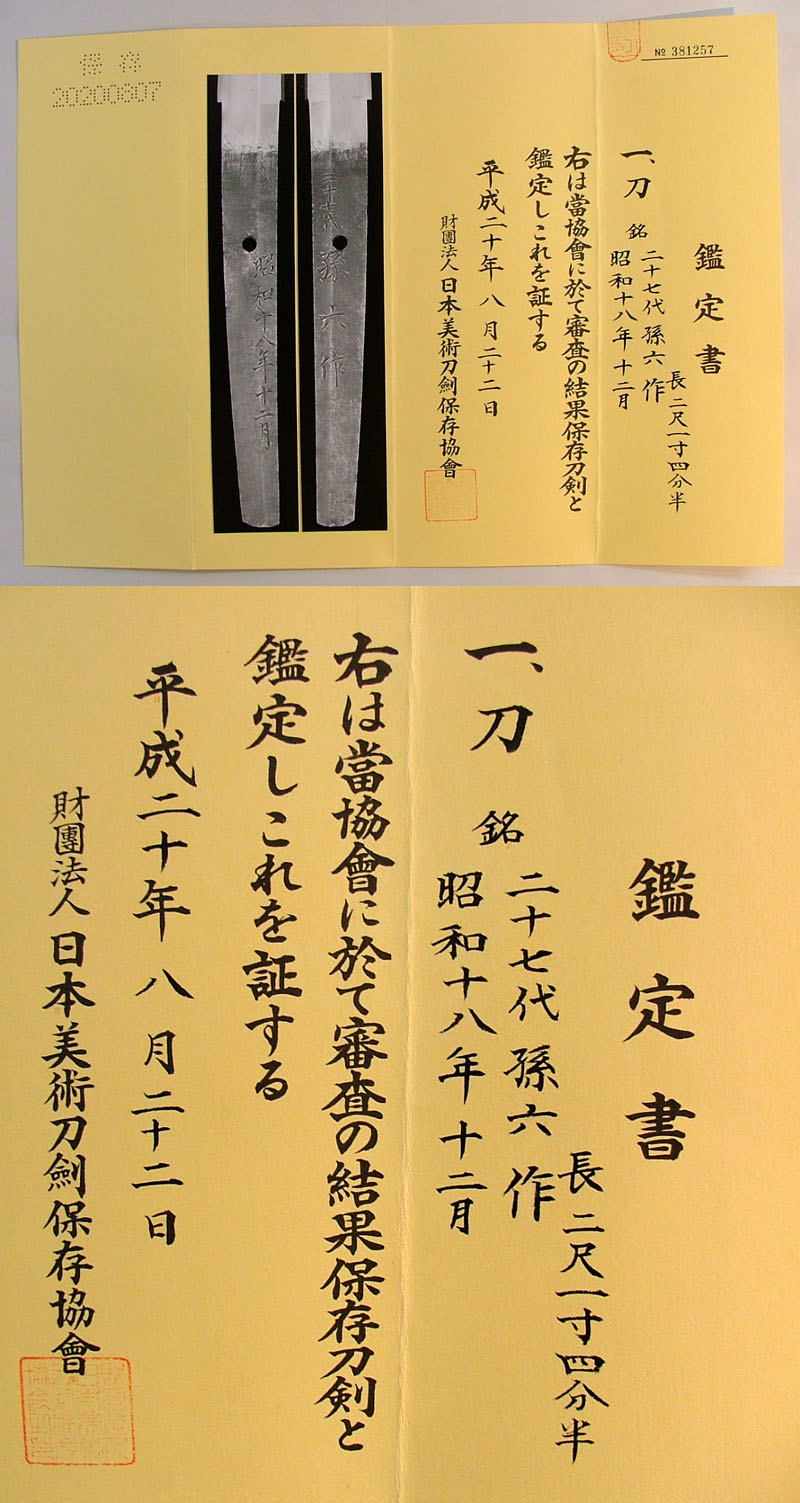 № 381257
鑑定書
長二尺一寸四分半
一、刀 銘 二十七代孫六作
昭和十八年十二月
右は當協會に於て審査の結果保存刀剣と
鑑定しこれを証する
平成二十年八月二十二日
財團法人日本美術刀劍保存協會
二十七代孫六作
昭和十八年十二月
保存
20200807
鑑定書
長二尺一寸四分半
一、刀 銘 二十七代孫六作
昭和十八年十二月
右は當協會に於て審査の結果保存刀剣と
鑑定しこれを証する
平成二十年八月二十二日
財團法人日本美術刀劍保存協會